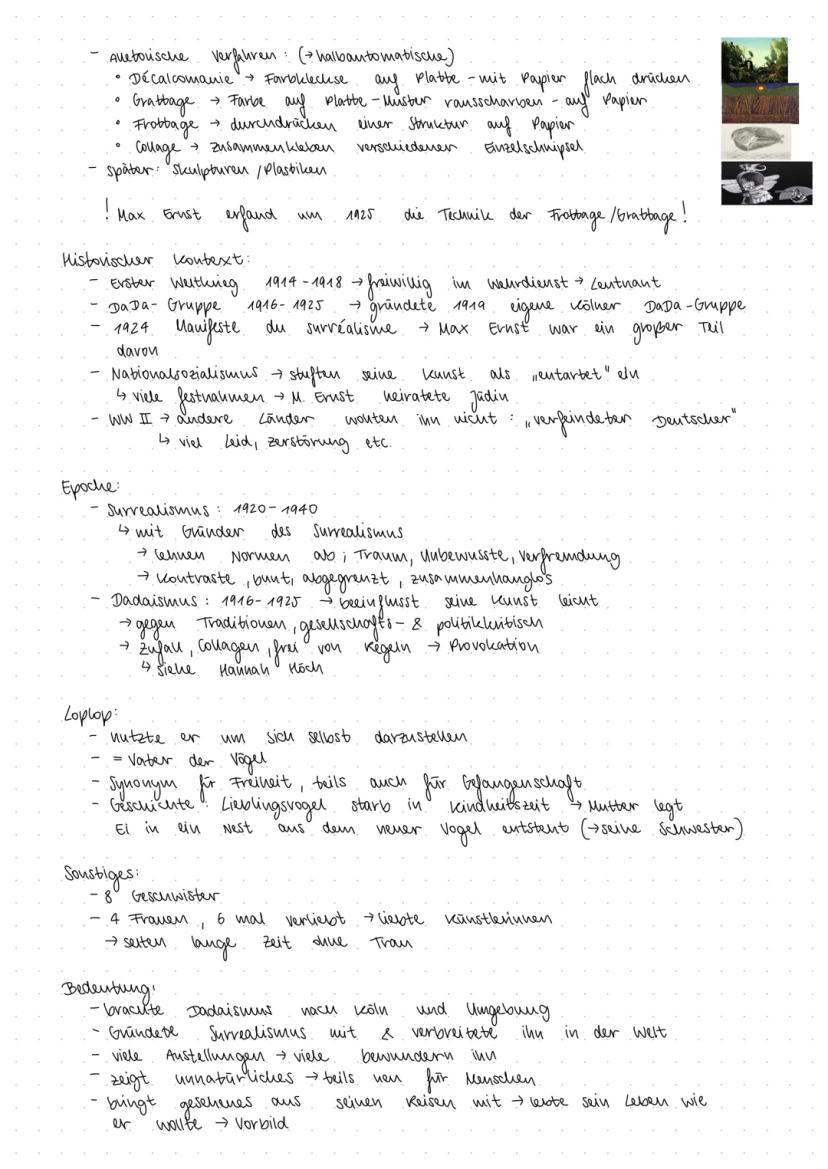 - Aletorische Verfahren: (→halbautomatische)
• Décalcomanie → Farbkleckse auf Platte - mit Papier flach drücken
• Grattage → Farbe auf Platte - Muster rausscharben - auf Papier
• Frottage → durchdrücken einer Struktur auf Papier
• Collage → zusammenkleben verschiedener Einzelschnipsel
- Später: Skulpturen / Plastiken
! Max Ernst erfand um 1925 die Technik der Frottage / Grattage!
Historischer Kontext:
- Erster Weltkrieg 1914-1918 → freiwillig im Wehrdienst → Leutnant
- DaDa-Gruppe 1916-1925 → gründete 1919 eigene Kölner DaDa-Gruppe
- 1924 Manifeste du surréalisme → Max Ernst war ein großer Teil
davon
- Nationalsozialismus → stuften seine Kunst als „entartet" ein
↳ viele festnahmen → M. Ernst heiratete Jüdin
- WW II → andere Länder wollten ihn nicht: „verfeindeter Deutscher"
↳ viel Leid, Zerstörung etc.
Epoche:
- Surrealismus: 1920-1940
↳ mit Gründer des Surrealismus
→ lehnen Normen ab; Traum, Unbewusste, Verfremdung
→ Kontraste, bunt, abgegrenzt, zusammenhanglos
- Dadaismus: 1916-1925 → beeinflusst seine Kunst leicht
→ gegen Traditionen, gesellschafts- & politikkritisch
→ Zufall, Collagen, frei von Regeln → Provokation
↳ siehe Hannah Höch
Loplop:
- nutzte er um sich selbst darzustellen
- = Vater der Vögel
- Synonym für Freiheit, teils auch für Gefangenschaft
- Geschichte: Lieblingsvogel starb in Kindheitszeit → Mutter legt
Ei in ein Nest aus dem neuer Vogel entsteht (→ seine Schwester)
Sonstiges:
- 8 Geschwister
- 4 Frauen, 6 mal verliebt → liebte Künstlerinnen
→ selten lange Zeit ohne Frau
Bedeutung:
- brachte Dadaismus nach Köln und Umgebung
- Gründete Surrealismus mit & verbreitete ihn in der Welt
- viele Austellungen → viele bewundern ihn
- zeigt unnatürliches → teils neu für Menschen
- bringt gesehenes aus seinen Reisen mit → lebte sein Leben wie
er wollte → Vorbild